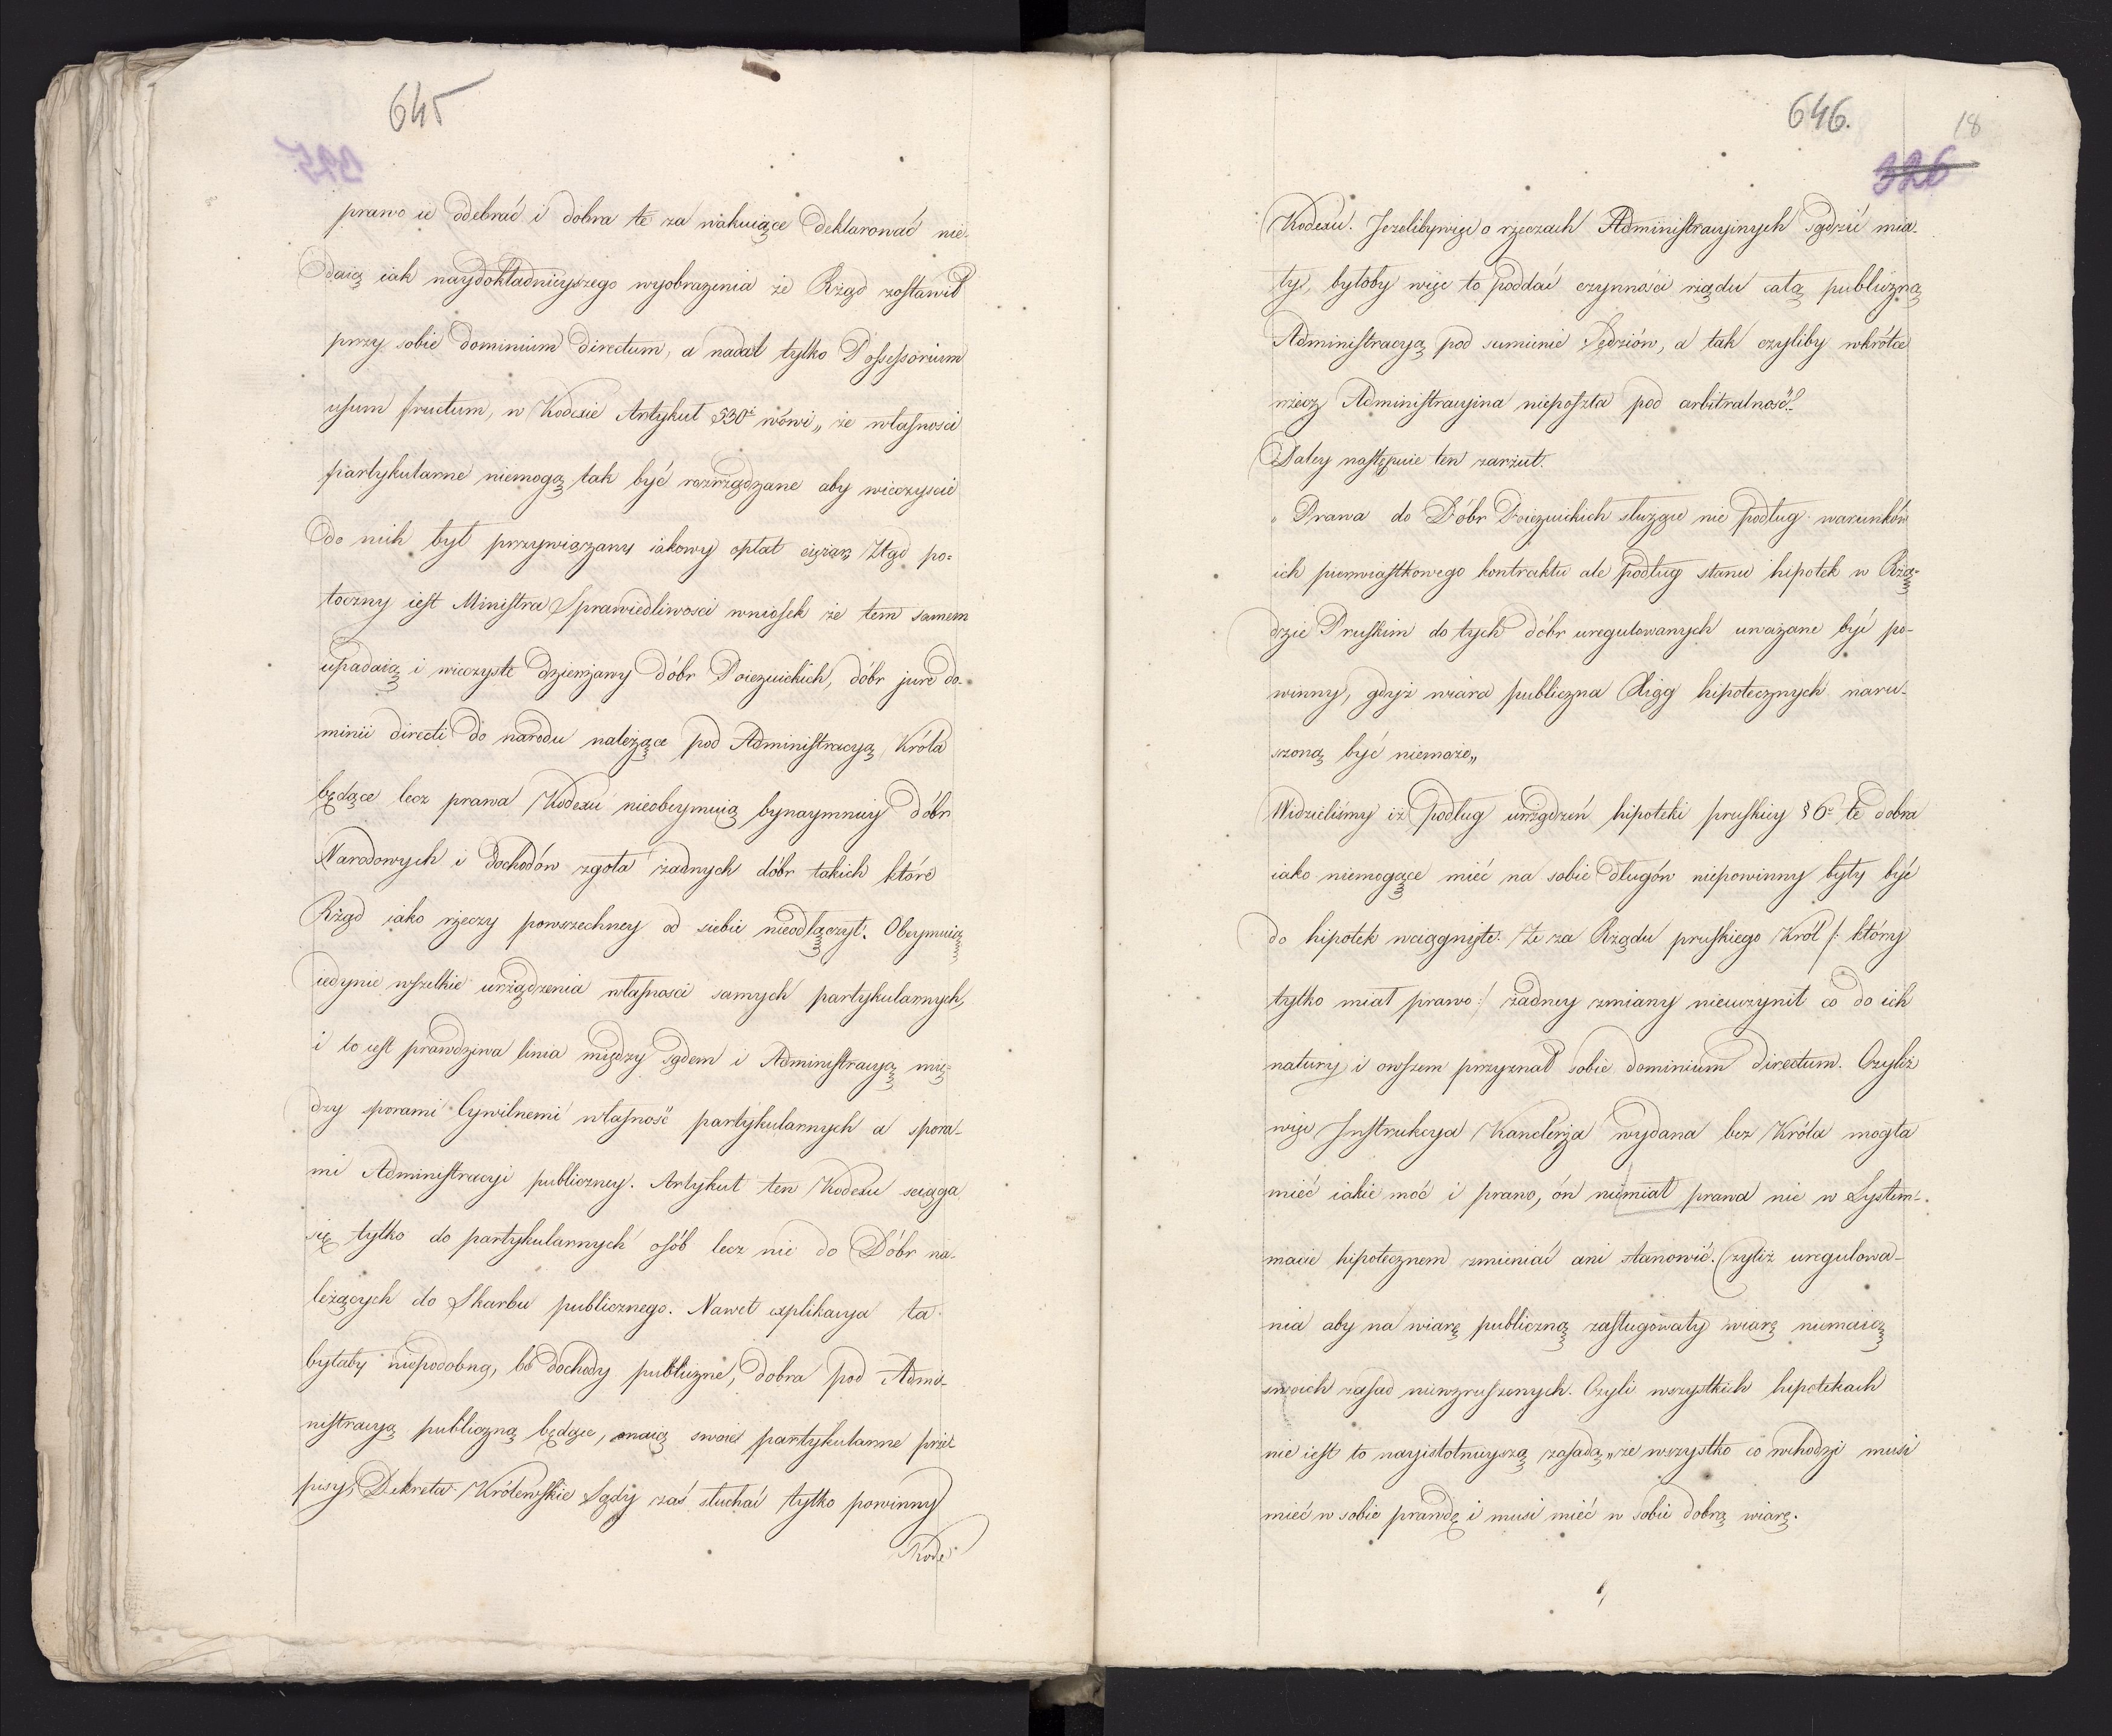 645
325
prawo ie odebrać i dobra te za wakuiące deklarować nie-
daią iak naydokładnieyszego wyobrażenia że Rząd zostawił
przy sobie dominium directum, a nadał tylko Possessorium
usum fructum, w Kodexie Artykuł 530ᵉ mówi „ że własności
partykularne niemogą tak być rozrządzane aby wieczyscie
do nich był przywiązany iakowy opłat ciężar Ztąd po=
toczny iest Ministra Sprawiedliwosci wniosek że tem samem
upadaią i wieczyste dzierżawy dóbr Poiezuickich, dóbr jure do-
minii directi do narodu należące pod Administracyą Króla
będące lecz prawa Kodexu nieobeymuią bynaymniey dóbr
Narodowych i dochodów zgoła żadnych dóbr takich które
Rząd iako rzeczy powszechney od siebie nieodłączył. Obeymuią
iedynie wszelkie urządzenia własnosci samych partykularnych,
i to iest prawdziwa linia między sądem i Administracyą mię=
dzy sporami Cywilnemi własność partykularnych a spora-
mi Administracyi publiczney. Artykuł ten Kodexu sciąga
się tylko do partykularnych osób lecz nie do Dóbr na-
leżących do Skarbu publicznego. Nawet explikacya ta
byłaby niepodobną, bo dochody publiczne, dobra pod Admi-
nistracyą publiczną będące, maią swoie partykularne prze
pisy, Dekreta Królewskie Sądy zaś słuchać tylko powinny
Kode
646.
18
326
Kodexu. Jeżelibywięc o rzeczach Administracyinych sądzić mia-
ły, byłoby więc to poddać czynności rządu całą publiczną
Administracyą pod sumienie Sędziów, a tak czyliby wkrótce
rzecz Administracyina nieposzła pod arbitralność?
Daley następuie ten zarzut.
„ Prawa do Dóbr Poiezuickich służące nie podług warunków
ich pierwiastkowego kontraktu ale podług stanu hipotek w Rzą=
dzie Pruskim do tych dóbr uregulowanych uważane być po-
winny, gdyż wiara publiczna Xiąg hipotecznych naru-
szoną być niemoże„
Widzieliśmy iż podług urządzeń hipoteki pruskiey § 6ᵉ te dobra
iako niemogące mieć na sobie długów niepowinny były być
do hipotek wciągnięte. Że za Rządu pruskiego Król /: który
tylko miał prawo :/ żadney zmiany nieuczynił co do ich
natury i owszem przyznał sobie dominium directum. Czyliż
więc Instrukcya Kanclerza wydana bez Króla mogła
mieć iakie moc i prawo, ón niemiał prawa nic w System-
macie hipotecznem zmieniać ani stanowić. Czyliż uregulowa-
nia aby na wiarę publiczną zasługiwały wiarę niemaią
swoich zasad niewzruszonych. Czyli wszystkich hipotekach
nie iest to nayistotnieyszą zasadą „że wszystko co wchodzi musi
mieć w sobie prawdę i musi mieć w sobie dobrą wiarę.